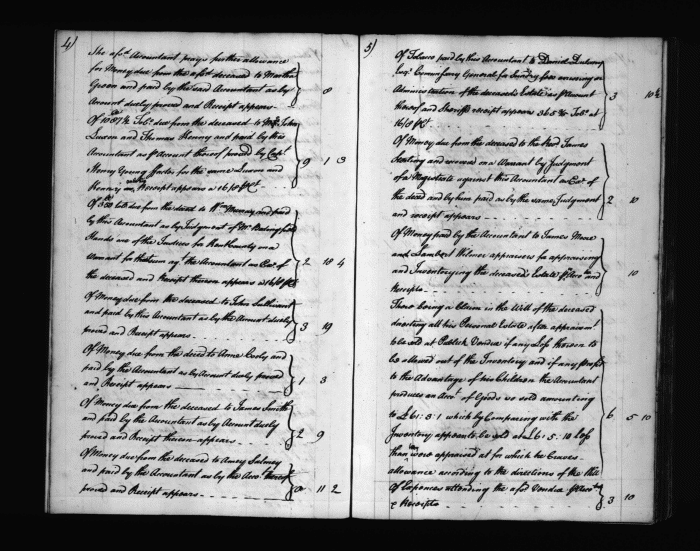 4)
The afsd. Accountant prays further allowance
for Money due from the afsd. deceased to Martha
and paid by the said Accountant as by
Account duly proved and Receipt appears 8
Of 1087½ Tobo. due from the deceased to John
and Thomas Kenny and paid by this
Accountant as p Account thereof proved by Capt.
Henry for the same and
Kenny Receipt appears a 16/8 pCt. 9 1 3
Of due from the decd. to Wm. Murray and paid
by this Accountant as by Judgment of
Hands one of the Justices for Kent County on a
Warrant for that sum agt. the Accountant as Exr. of
the deceased and Receipt thereon appears a 16/8 pCt 2 18 4
Of Money due from the deceased to John Sullivant
and paid by this Accountant as by the Account duely
proved and Receipt appears 3 19
Of Money due from the deced to Anna and
paid by the Accountant as by Account duely proved
and Receipt appears 1 3
Of Money due from the deceased to James Smith
and paid by the Accountant as by Account duely
proved and Receipt thereon appears 2 9
Of Money due from the deceased to
and paid by the Accountant as by the Acco. thereof
proved and Receipt appears 0 11 2
5)
Of Tobacco paid by this Accountant to Daniel Dulany
Esqr. Commissary General for Sundry fees accruing on
Administration of the deceased's Estate as p Account
thereof and Sheriffs receipt appears 365 Tobo. at
16/8 pCt 3 10½
Of Money due from the deceased to the Revd. James
Sterling and recovered on a Warrant by Judgment
of a Magestrate against this Accountant as Exr. of
the decd. and by him paid as by the same Judgment
and receipt appears 2 10
Of Money paid by the Accountant to James Moore
and Lambert Wilmer appraisers for appraising
and Inventorying the deceased's Estate p Acco. and
Receipts 10
There being a Clause in the Will of the deceased
directing all his Personal Estate after appraismt.
to be sold at Publick Vendue if any Loss thereon to
be allowed out of the Inventory and if any profit
to the Advantage of his Children the Accountant
produces an Acco. of Goods so sold amounting
to £61.3.1 which by Comparing with the
Inventory appears to be sold at £6.5.10 Less
than were appraised at for which he Craves
allowance according to the directions of the Will 6 5 10
Of Expences attending the afsd. Vendue p Acco.
& Receipts 3 10